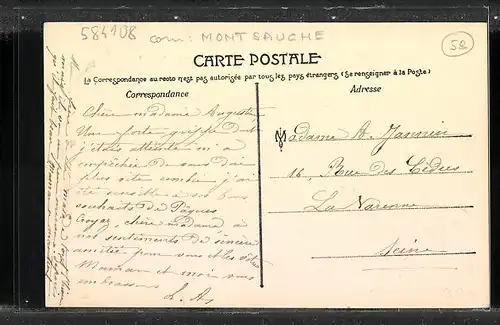 584108 com: MONTSAUCHE
58
CARTE POSTALE
La Correspondance au recto n'est pas autorisée par tous les pays étrangers (Se renseigner à la Poste)
Correspondance
Adresse
Chère madame Auguste,
Une forte grippe dont
j'étais atteinte m'a
empêchée de vous dire
plus vite combien j'ai
été sensible à vos bons
souhaits de Pâques
Croyez, chère madame, à
nos sentiments de sincère
amitié pour vous et les vôtres
Maman et moi vous
embrassons
L. As
Madame A. Jannin
16, Rue des Cèdres
La Varenne
Seine